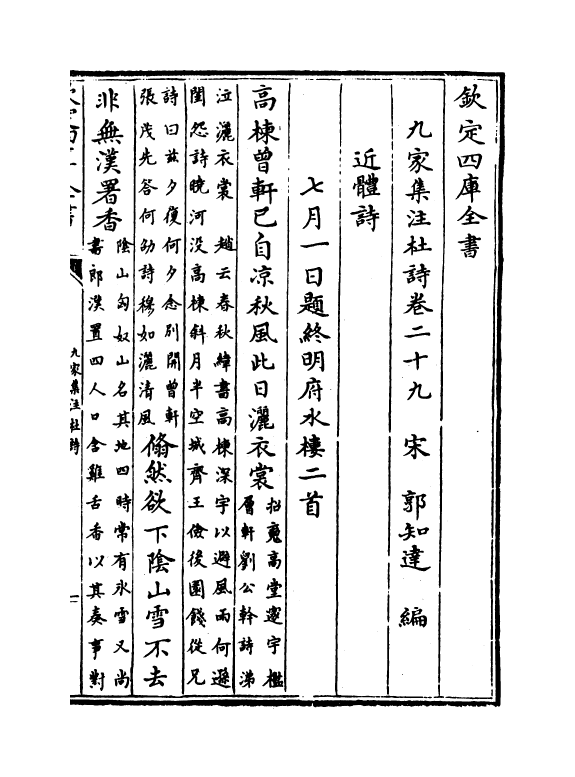 欽定四庫全書
九家集注杜詩卷二十九 宋 郭知達 編
近體詩
七月一日題終明府水樓二首
高棟曾軒已自凉秋風此日灑衣裳
招䰟高堂邃宇檻
層軒劉公幹詩涕
泣灑衣裳 趙云春秋緯書高棟深宇以避風雨何遜
閨怨詩曉河没高棟斜月半空城齊王儉後園餞從兄
詩曰兹夕復何夕念别開曾軒
張茂先答何劭詩穆如灑清風
翛然欲下陰山雪不去
非無漢署香
陰山匈奴山名其地四時常有氷雪又尚
書郎漢置四人口含雞舌香以其奏事對
九家集注杜詩
一